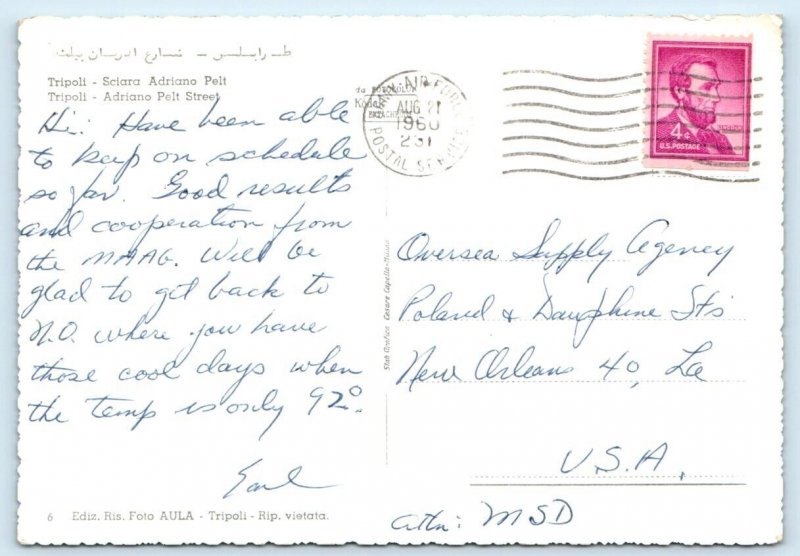 طرابلس – شارع ادريان بيلت
Tripoli - Sciara Adriano Pelt
Tripoli - Adriano Pelt Street
Hi: Have been able
to keep on schedule
so far. Good results
and cooperation from
the MAAG. Will be
glad to get back to
N.O. where you have
those cool days when
the temp is only 92°.
Earl
6 Ediz. Ris. Foto AULA - Tripoli - Rip. vietata.
AIR FORCE
AUG 21
1960
231
POSTAL SERVICE
LINCOLN
4¢
U.S. POSTAGE
Oversea Supply Agency
Poland & Dauphine Sts
New Orleans 40, La
U.S.A,
attn: MSD
Cesare Capello-Milano